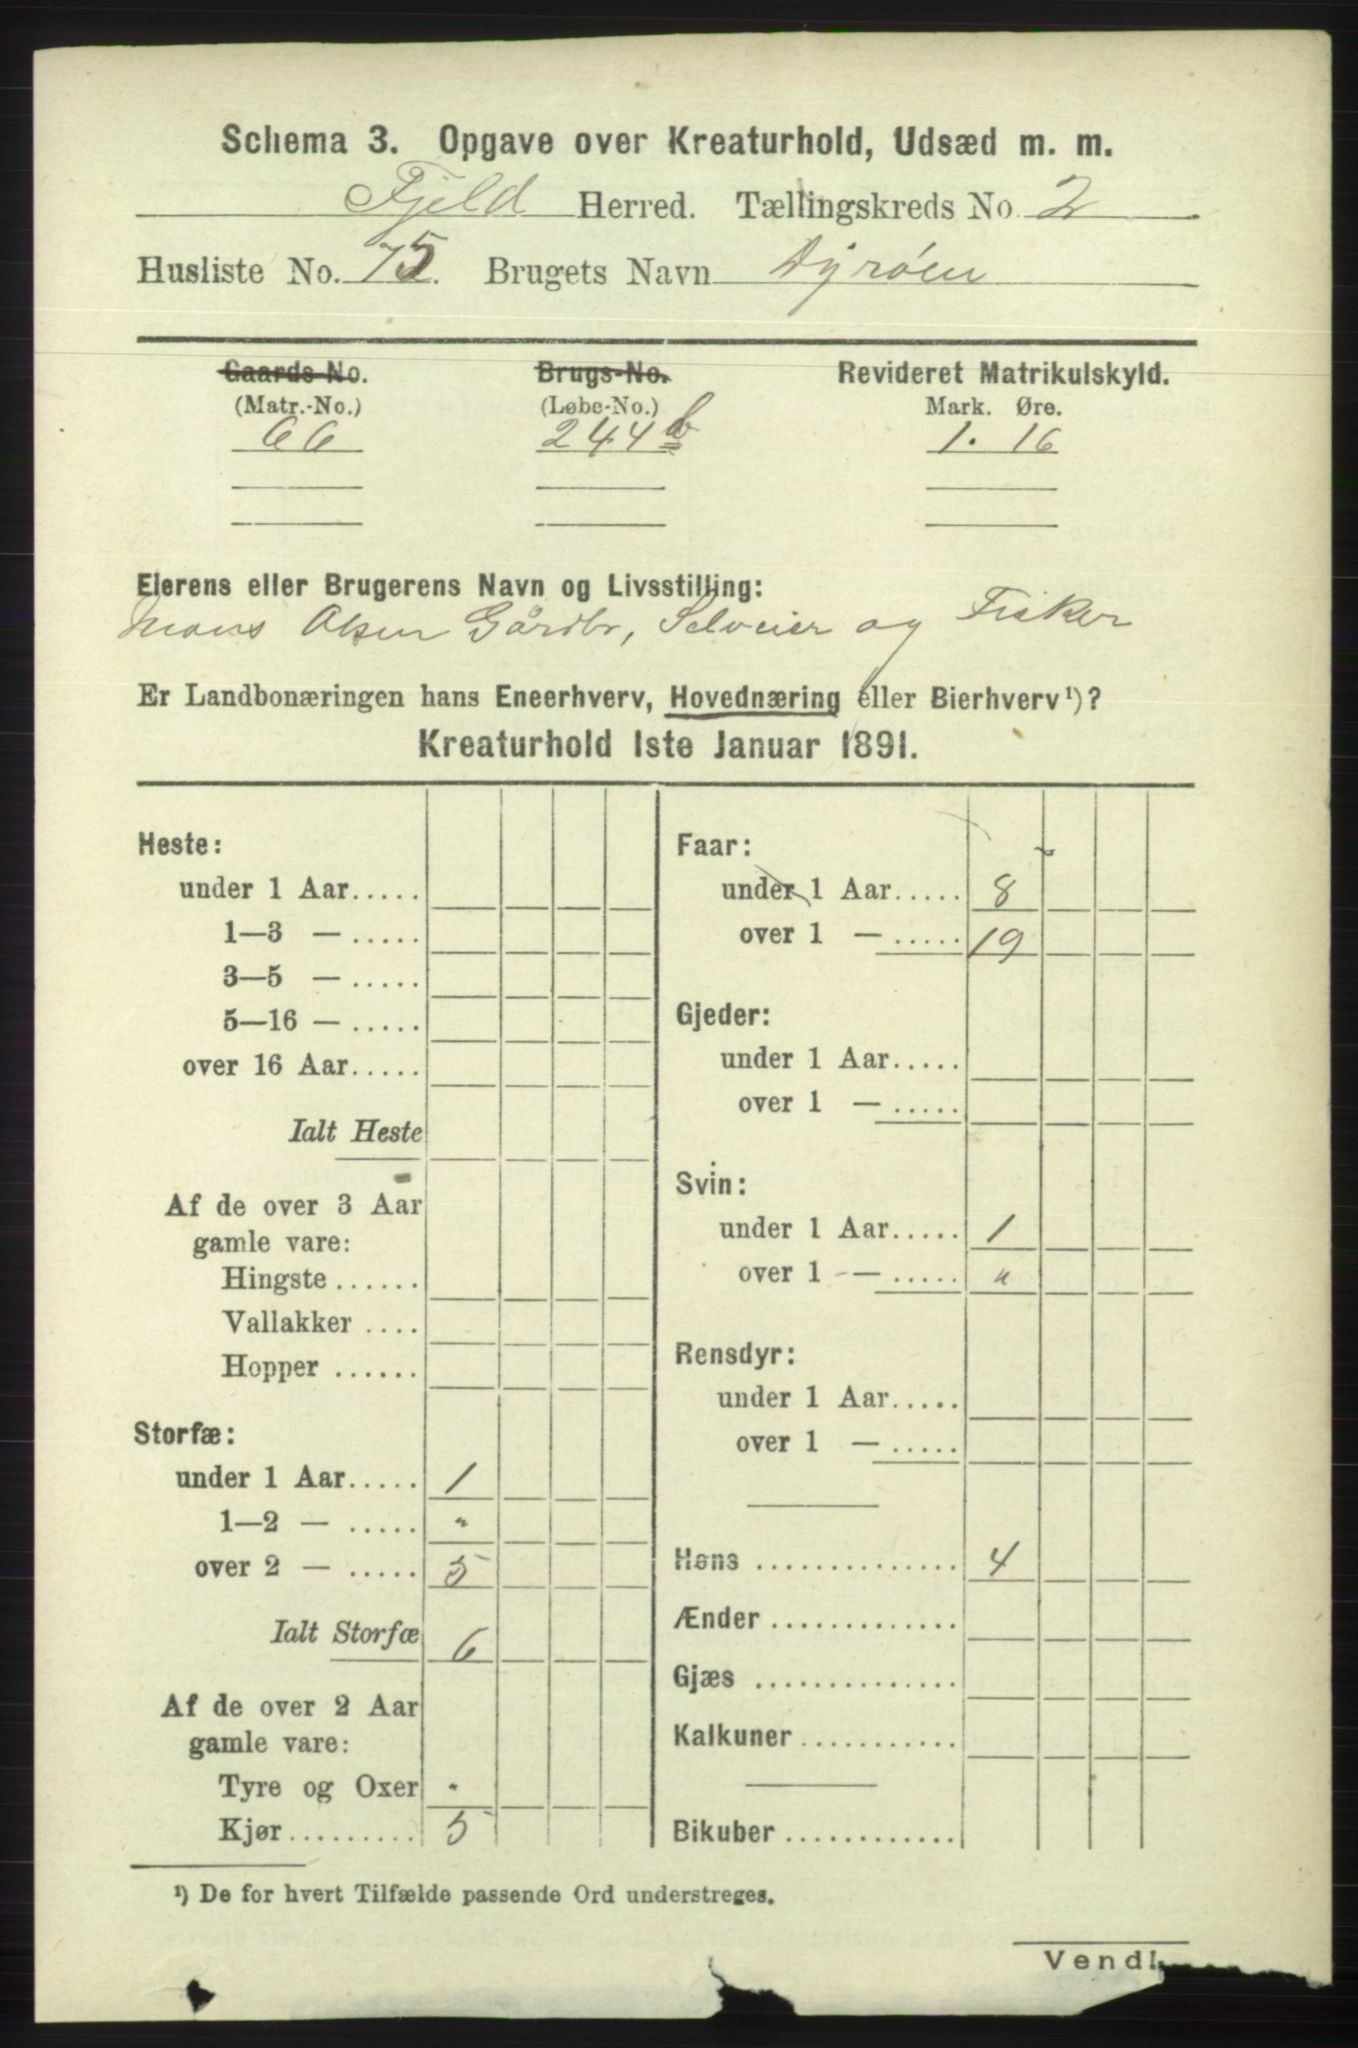 Schema 3. Opgave over Kreaturhold, Udsæd m. m.
Fjeld Herred. Tællingskreds No. 2
Husliste No. 75. Brugets Navn Dyröen
Gaards-No. Brugs-No. Revideret Matrikulskyld.
(Matr.-No.) (Løbe-No.) Mark. Øre.
66 244 b 1. 16
Eierens eller Brugerens Navn og Livsstilling:
Mons Olsen Gårdbr, Selveier og Fisker
Er Landbonæringen hans Eneerhverv, Hovednæring eller Bierhverv¹)?
Kreaturhold 1ste Januar 1891.
Heste:
under 1 Aar.....
1—3 — .....
3—5 — .....
5—16 — .....
over 16 Aar.....
Ialt Heste
Af de over 3 Aar
gamle vare:
Hingste ......
Vallakker ....
Hopper ......
Storfæ:
under 1 Aar..... 1
1—2 — ..... "
over 2 — ..... 5
Ialt Storfæ 6
Af de over 2 Aar
gamle vare:
Tyre og Oxer "
Kjør.......... 5
Faar:
under 1 Aar..... 8
over 1 — ..... 19
Gjeder:
under 1 Aar.....
over 1 — .....
Svin:
under 1 Aar..... 1
over 1 — ..... "
Rensdyr:
under 1 Aar.....
over 1 — .....
Høns ............... 4
Ænder ..............
Gjæs ...............
Kalkuner ............
Bikuber .............
¹) De for hvert Tilfælde passende Ord understreges.
Vend!